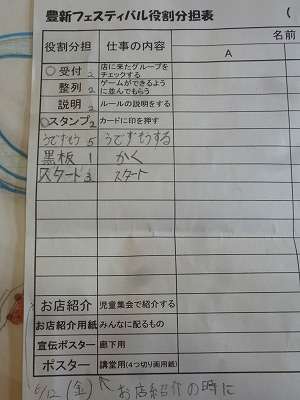 豊新フェスティバル役割分担表 (
役割分担 仕事の内容 名前
A
○受付 2 店に来たグループをチェックする
整列 2 ゲームができるように並んでもらう
説明 2 ルールの説明をする
○スタンプ 2 カードに印を押す
うでずもう 5 うでずもうする
黒板 1 かく
スタート 3 スタート
お店紹介 児童集会で紹介する
お店紹介用紙 みんなに配るもの
宣伝ポスター 廊下用
ポスター 講堂用(4つ切り画用紙)
6/12 (金) お店紹介の時に